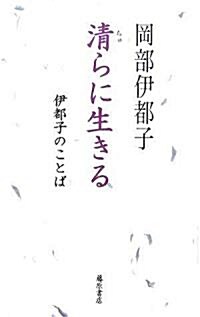 岡部伊都子
清らに生きる
ちゅ
伊都子のことば
藤原書店